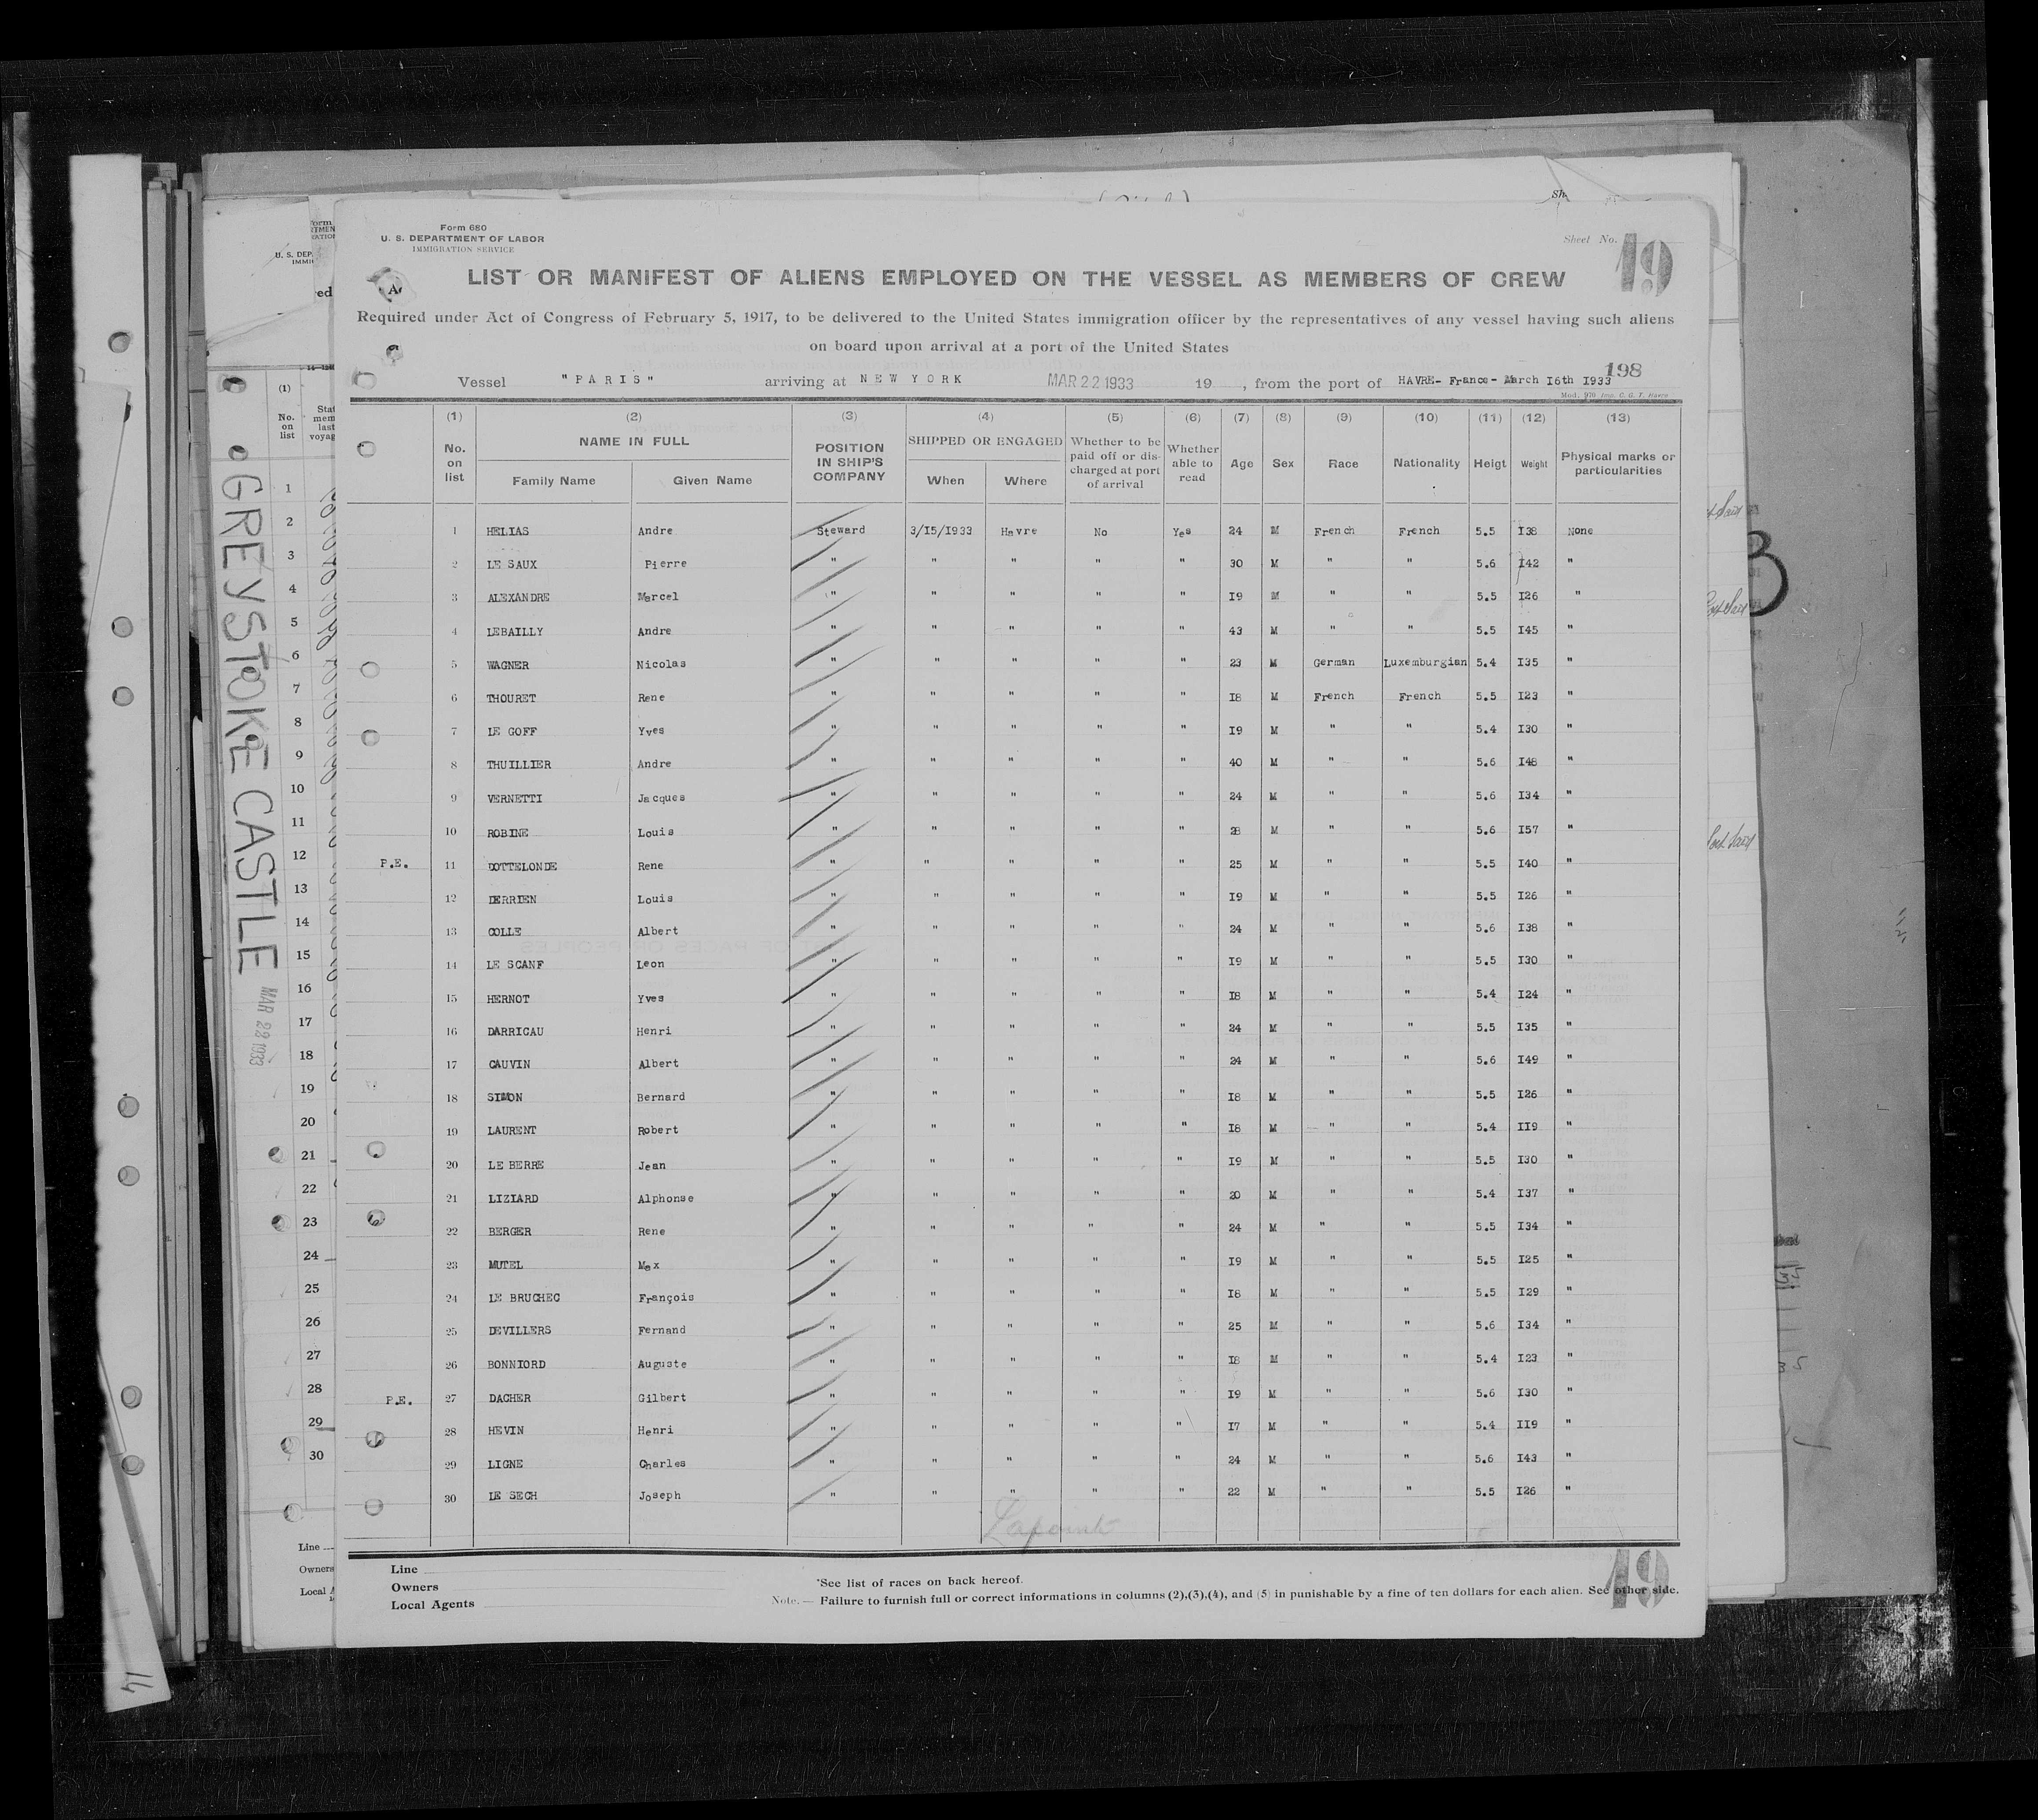 Form 680
U. S. DEPARTMENT OF LABOR
IMMIGRATION SERVICE
Sheet No. 19
LIST OR MANIFEST OF ALIENS EMPLOYED ON THE VESSEL AS MEMBERS OF CREW
Required under Act of Congress of February 5, 1917, to be delivered to the United States immigration officer by the representatives of any vessel having such aliens
on board upon arrival at a port of the United States
198
Vessel "PARIS" arriving at NEW YORK MAR 22 1933 19 , from the port of HAVRE- France- March I6th I933
Mod. 970 Imp. C. G. T. Havre
(1) (2) (3) (4) (5) (6) (7) (8) (9) (10) (11) (12) (13)
No. on list NAME IN FULL Family Name Given Name POSITION IN SHIP'S COMPANY SHIPPED OR ENGAGED When Where Whether to be paid off or discharged at port of arrival Whether able to read Age Sex Race Nationality Heigt Weight Physical marks or particularities
1 HELIAS Andre Steward 3/I5/1933 Havre No Yes 24 M French French 5.5 I38 None
2 LE SAUX Pierre " " " " " 30 M " " 5.6 I42 "
3 ALEXANDRE Marcel " " " " " I9 M " " 5.5 I26 "
4 LEBAILLY Andre " " " " " 43 M " " 5.5 I45 "
5 WAGNER Nicolas " " " " " 23 M German Luxemburgian 5.4 I35 "
6 THOURET Rene " " " " " I8 M French French 5.5 I23 "
7 LE GOFF Yves " " " " " I9 M " " 5.4 I30 "
8 THUILLIER Andre " " " " " 40 M " " 5.6 I48 "
9 VERNETTI Jacques " " " " " 24 M " " 5.6 I34 "
10 ROBINE Louis " " " " " 28 M " " 5.6 I57 "
P.E. 11 COTTELONDE Rene " " " " " 25 M " " 5.5 I40 "
12 DERRIEN Louis " " " " " I9 M " " 5.5 I26 "
13 COLLE Albert " " " " " 24 M " " 5.6 I38 "
14 LE SCANF Leon " " " " " I9 M " " 5.5 I30 "
15 HERNOT Yves " " " " " I8 M " " 5.4 I24 "
16 DARRICAU Henri " " " " " 24 M " " 5.5 I35 "
17 CAUVIN Albert " " " " " 24 M " " 5.6 I49 "
18 SIMON Bernard " " " " " I8 M " " 5.5 I26 "
19 LAURENT Robert " " " " " I8 M " " 5.4 II9 "
20 LE BERRE Jean " " " " " I9 M " " 5.5 I30 "
21 LIZIARD Alphonse " " " " " 20 M " " 5.4 I37 "
22 BERGER Rene " " " " " 24 M " " 5.5 I34 "
23 MUTEL Max " " " " " I9 M " " 5.5 I25 "
24 LE BRUCHEC François " " " " " I8 M " " 5.5 I29 "
25 DEVILLERS Fernand " " " " " 25 M " " 5.6 I34 "
26 BONNIORD Auguste " " " " " I8 M " " 5.4 I23 "
P.E. 27 DACHER Gilbert " " " " " I9 M " " 5.6 I30 "
28 HEVIN Henri " " " " " I7 M " " 5.4 II9 "
29 LIGNE Charles " " " " " 24 M " " 5.6 I43 "
30 LE SECH Joseph " " " " " 22 M " " 5.5 I26 "
Line
Owners
Local Agents
*See list of races on back hereof.
Note. — Failure to furnish full or correct informations in columns (2),(3),(4), and (5) in punishable by a fine of ten dollars for each alien. See other side.
19
GREYSTOKE CASTLE
MAR 22 1933
(1)
No. on list
1
2
3
4
5
6
7
8
9
10
11
12
13
14
15
16
17
18
19
20
21
22
23
24
25
26
27
28
29
30
Line
Owners
14